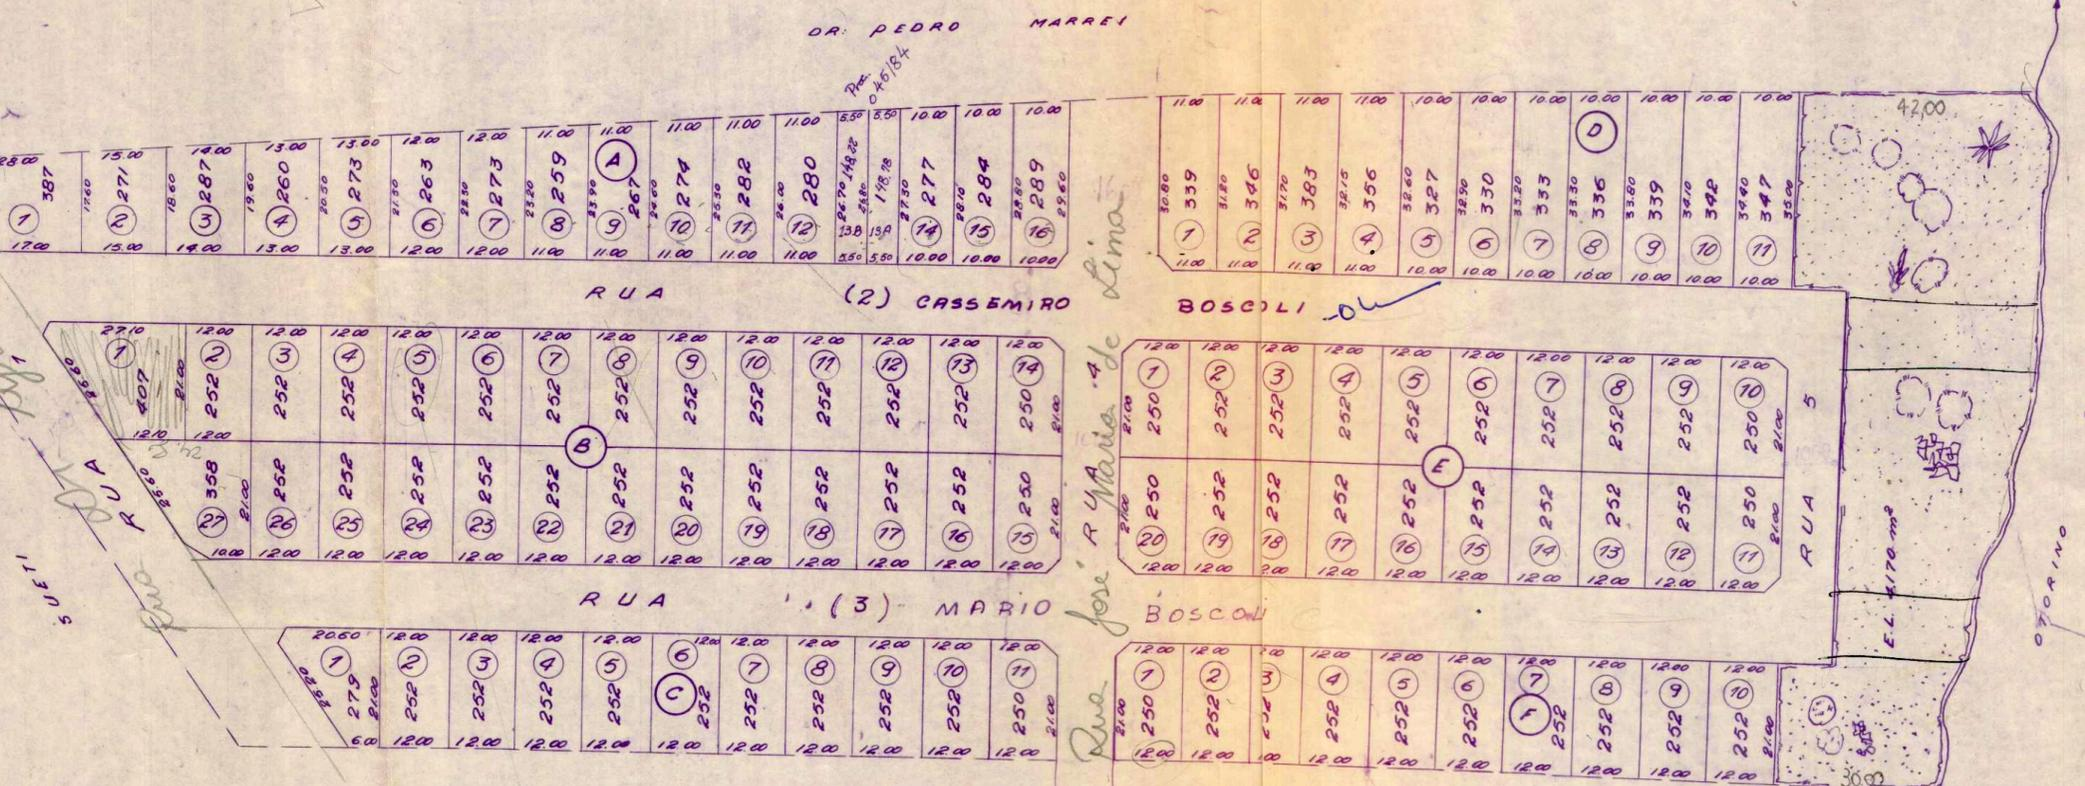 DR. PEDRO MARREI
Proc. 046/84
28.00 15.00 14.00 13.00 13.00 12.00 12.00 11.00 11.00 11.00 11.00 11.00 5.50 5.50 10.00 10.00 10.00
387 17.60 271 18.60 287 19.60 260 20.50 273 21.30 263 22.30 273 23.20 259 23.90 267 24.60 274 25.30 282 26.00 280 26.70 148,22 26.80 148,78 27.30 277 28.10 284 28.80 289 29.60
A
1 2 3 4 5 6 7 8 9 10 11 12 13B 13A 14 15 16
17.00 15.00 14.00 13.00 13.00 12.00 12.00 11.00 11.00 11.00 11.00 11.00 5.50 5.50 10.00 10.00 10.00
11.00 11.00 11.00 11.00 10.00 10.00 10.00 10.00 10.00 10.00 10.00
D
30.80 339 31.20 346 31.70 383 32.15 356 32.60 327 32.90 330 33.20 333 33.30 336 33.80 339 34.10 342 34.40 347 35.00
1 2 3 4 5 6 7 8 9 10 11
11.00 11.00 11.00 11.00 10.00 10.00 10.00 10.00 10.00 10.00 10.00
42,00
RUA (2) CASSEMIRO BOSCOLI
27.10 12.00 12.00 12.00 12.00 12.00 12.00 12.00 12.00 12.00 12.00 12.00 12.00 12.00
1 2 3 4 5 6 7 8 9 10 11 12 13 14
407 21.00 252 252 252 252 252 252 252 252 252 252 252 252 250 21.00
12.10 12.00
B
358 21.00 252 252 252 252 252 252 252 252 252 252 252 250 21.00
27 26 25 24 23 22 21 20 19 18 17 16 15
10.00 12.00 12.00 12.00 12.00 12.00 12.00 12.00 12.00 12.00 12.00 12.00 12.00
RUA
SUETI
Rua José Maria de Lima
RUA 4
12.00 12.00 12.00 12.00 12.00 12.00 12.00 12.00 12.00 12.00
1 2 3 4 5 6 7 8 9 10
21.00 250 252 252 252 252 252 252 252 252 250 21.00
E
21.00 250 252 252 252 252 252 252 252 252 250 21.00
20 19 18 17 16 15 14 13 12 11
12.00 12.00 2.00 12.00 12.00 12.00 12.00 12.00 12.00 12.00
RUA 5
E.L. 4.170 m²
OTTORINO
RUA (3) MARIO BOSCOLI
20.60 12.00 12.00 12.00 12.00 12.00 12.00 12.00 12.00 12.00 12.00
1 2 3 4 5 6 7 8 9 10 11
279 21.00 252 252 252 252 252 252 252 252 252 250 21.00
C
6.00 12.00 12.00 12.00 12.00 12.00 12.00 12.00 12.00 12.00 12.00
12.00 12.00 12.00 12.00 12.00 12.00 12.00 12.00 12.00
1 2 3 4 5 6 7 8 9 10
21.00 250 252 252 252 252 252 252 252 252 21.00
F
12.00 12.00 12.00 12.00 12.00 12.00 12.00 12.00 12.00
30.00